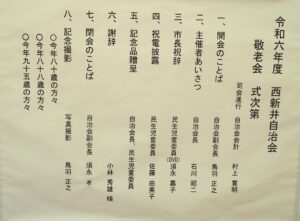 令和六年度　西新井自治会
敬老会　式次第
司会進行　自治会会計　村上寛明
一、開会のことば　自治会副会長　鳥羽正之
二、主催者あいさつ　自治会長　石川昭二
三、市長祝辞　民生児童委員　須永嘉子
(DVD)
四、祝電披露　民生児童委員　佐藤由美子
五、記念品贈呈　自治会長、民生児童委員
六、謝辞　小林秀雄様
七、閉会のことば　自治会副会長　須永孝
八、記念撮影　写真撮影　鳥羽正之
〇今年八十歳の方々
〇今年八十八歳の方々
〇今年九十五歳の方々